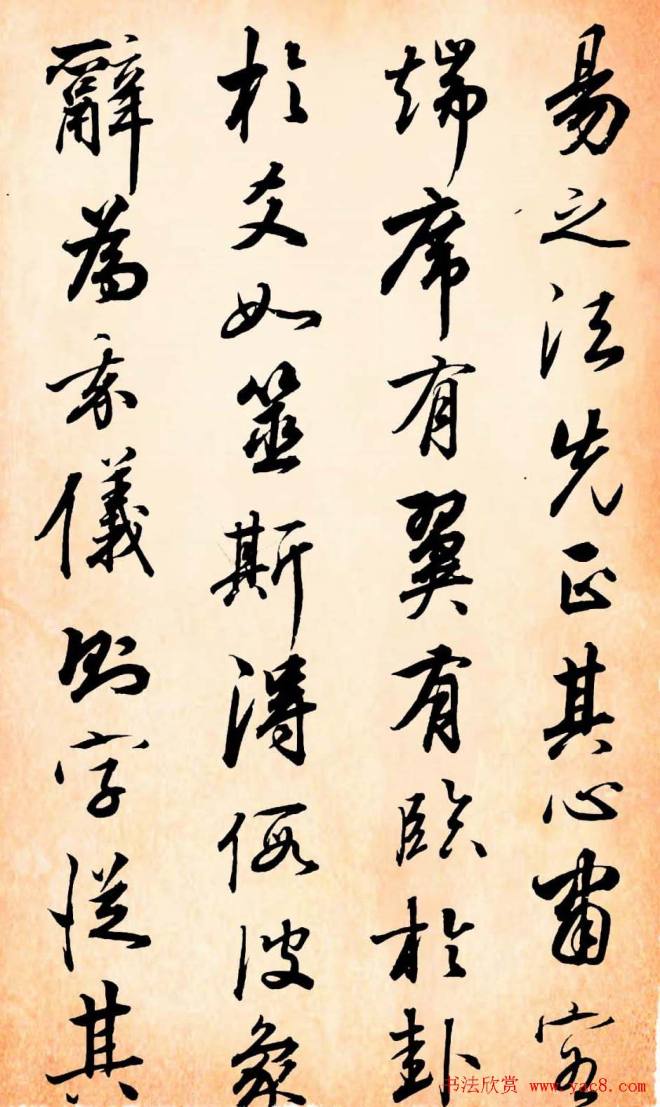 易之法先正其心肅容
端席有翼有臨於卦
於爻如筮斯得假彼象
辭為我儀則字從其
书法欣赏 www.yac8.com